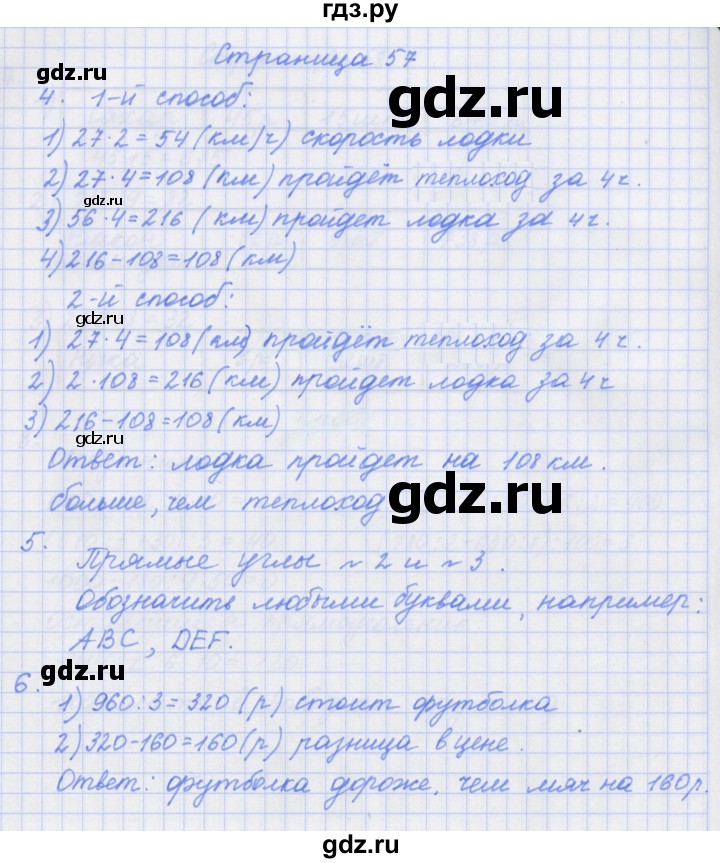 гдз.ру
Страница 57
gdz.ru
4. 1-й способ:
gdz.ru
1) 27·2=54 (км/ч) скорость лодки
2) 27·4=108 (км) пройдёт теплоход за 4ч.
gdz.ru
3) 56·4=216 (км) пройдет лодка за 4ч.
4) 216-108=108 (км)
2-й способ:
gdz.ru
1) 27·4=108 (км) пройдёт теплоход за 4ч.
2) 2·108=216 (км) пройдет лодка за 4ч
3) 216-108=108 (км)
gdz.ru
Ответ: лодка пройдет на 108 км.
больше, чем теплоход
gdz.ru
5. Прямые углы №2 и №3.
Обозначить любыми буквами, например:
ABC, DEF.
gdz.ru
6. 1) 960:3=320 (р) стоит футболка
2) 320-160=160 (р) разница в цене.
Ответ: футболка дороже, чем мяч на 160р.
gdz.ru